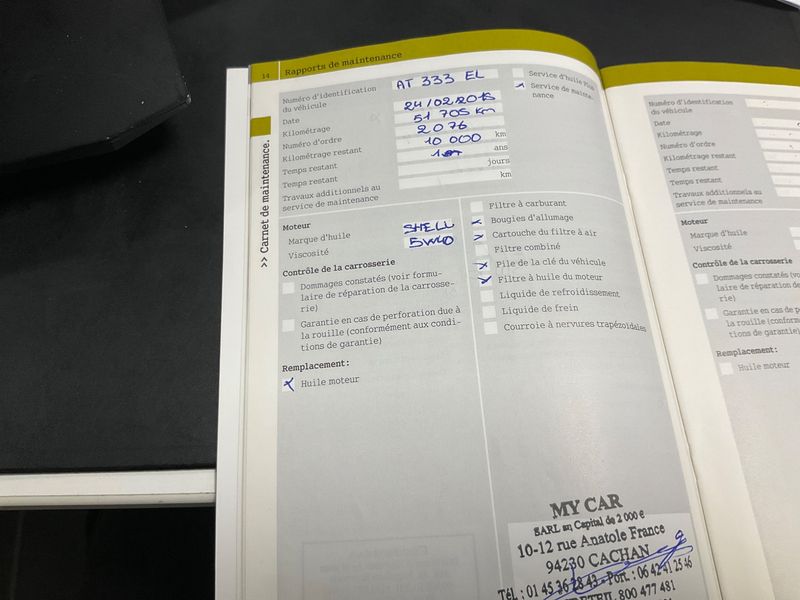 14 Rapports de maintenance
Numéro d'identification
du véhicule
AT 333 EL
Date
24/02/2018
Kilométrage
51 705 km
Numéro d'ordre
2076
Kilométrage restant
10 000 km
Temps restant
1 ans
Temps restant
jours
Travaux additionnels au
service de maintenance
km
Service d'huile
Service de mainte-
nance
>> Carnet de maintenance.
Moteur
Marque d'huile
SHELL
Viscosité
Contrôle de la carrosserie
Dommages constatés (voir formu-
laire de réparation de la carrosse-
rie)
Garantie en cas de perforation due à
la rouille (conformément aux condi-
tions de garantie)
Remplacement:
Huile moteur
Filtre à carburant
Bougies d'allumage
Cartouche du filtre à air
Filtre combiné
Pile de la clé du véhicule
Filtre à huile du moteur
Liquide de refroidissement
Liquide de frein
Courroie à nervures trapézoïdales
MY CAR
SARL au Capital de 2 000 €
10-12 rue Anatole France
94230 CACHAN
Tél. : 01 45 36 28 43 - Port. : 06 42 41 25 46
CRETEIL 800 477 481
Numéro d'identification
du véhicule
Date
Kilométrage
Numéro d'ordre
Kilométrage restant
Temps restant
Temps restant
Travaux additionnels au
service de maintenance
Moteur
Marque d'huile
Viscosité
Contrôle de la carrosserie
Dommages constatés
laire de réparation de
rie)
Garantie en cas de
la rouille
tions de garantie)
Remplacement:
Huile moteur